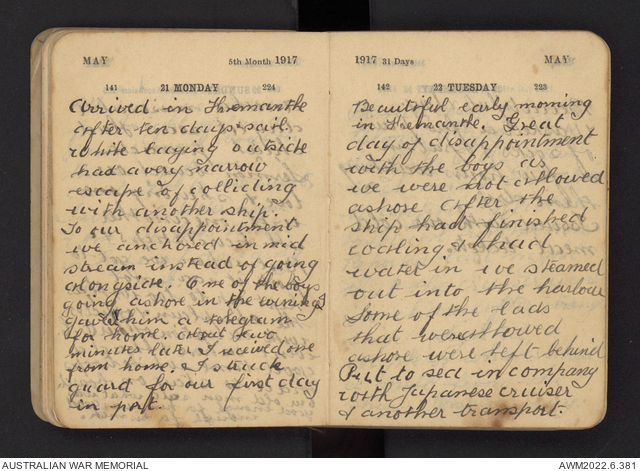 MAY 5th Month 1917
141 21 MONDAY 224
Arrived in Fremantle
after ten days sail.
While laying outside
had a very narrow
escape of colliding
with another ship.
To our disappointment
we anchored in mid
stream instead of going
alongside. One of the boys
going ashore in the evening I
gave him a telegram
for home. About two
minutes later I received one
from home. I struck
guard for our first day
in port.
1917 31 Days MAY
142 22 TUESDAY 223
Beautiful early morning
in Fremantle. Great
day of disappointment
with the boys as
we were not allowed
ashore. After the
ship had finished
coaling & had
water in we steamed
out into the harbour
Some of the lads
that were allowed
ashore were left behind
Put to sea in company
with Japanese cruiser
& another transport.
AUSTRALIAN WAR MEMORIAL
AWM2022.6.381